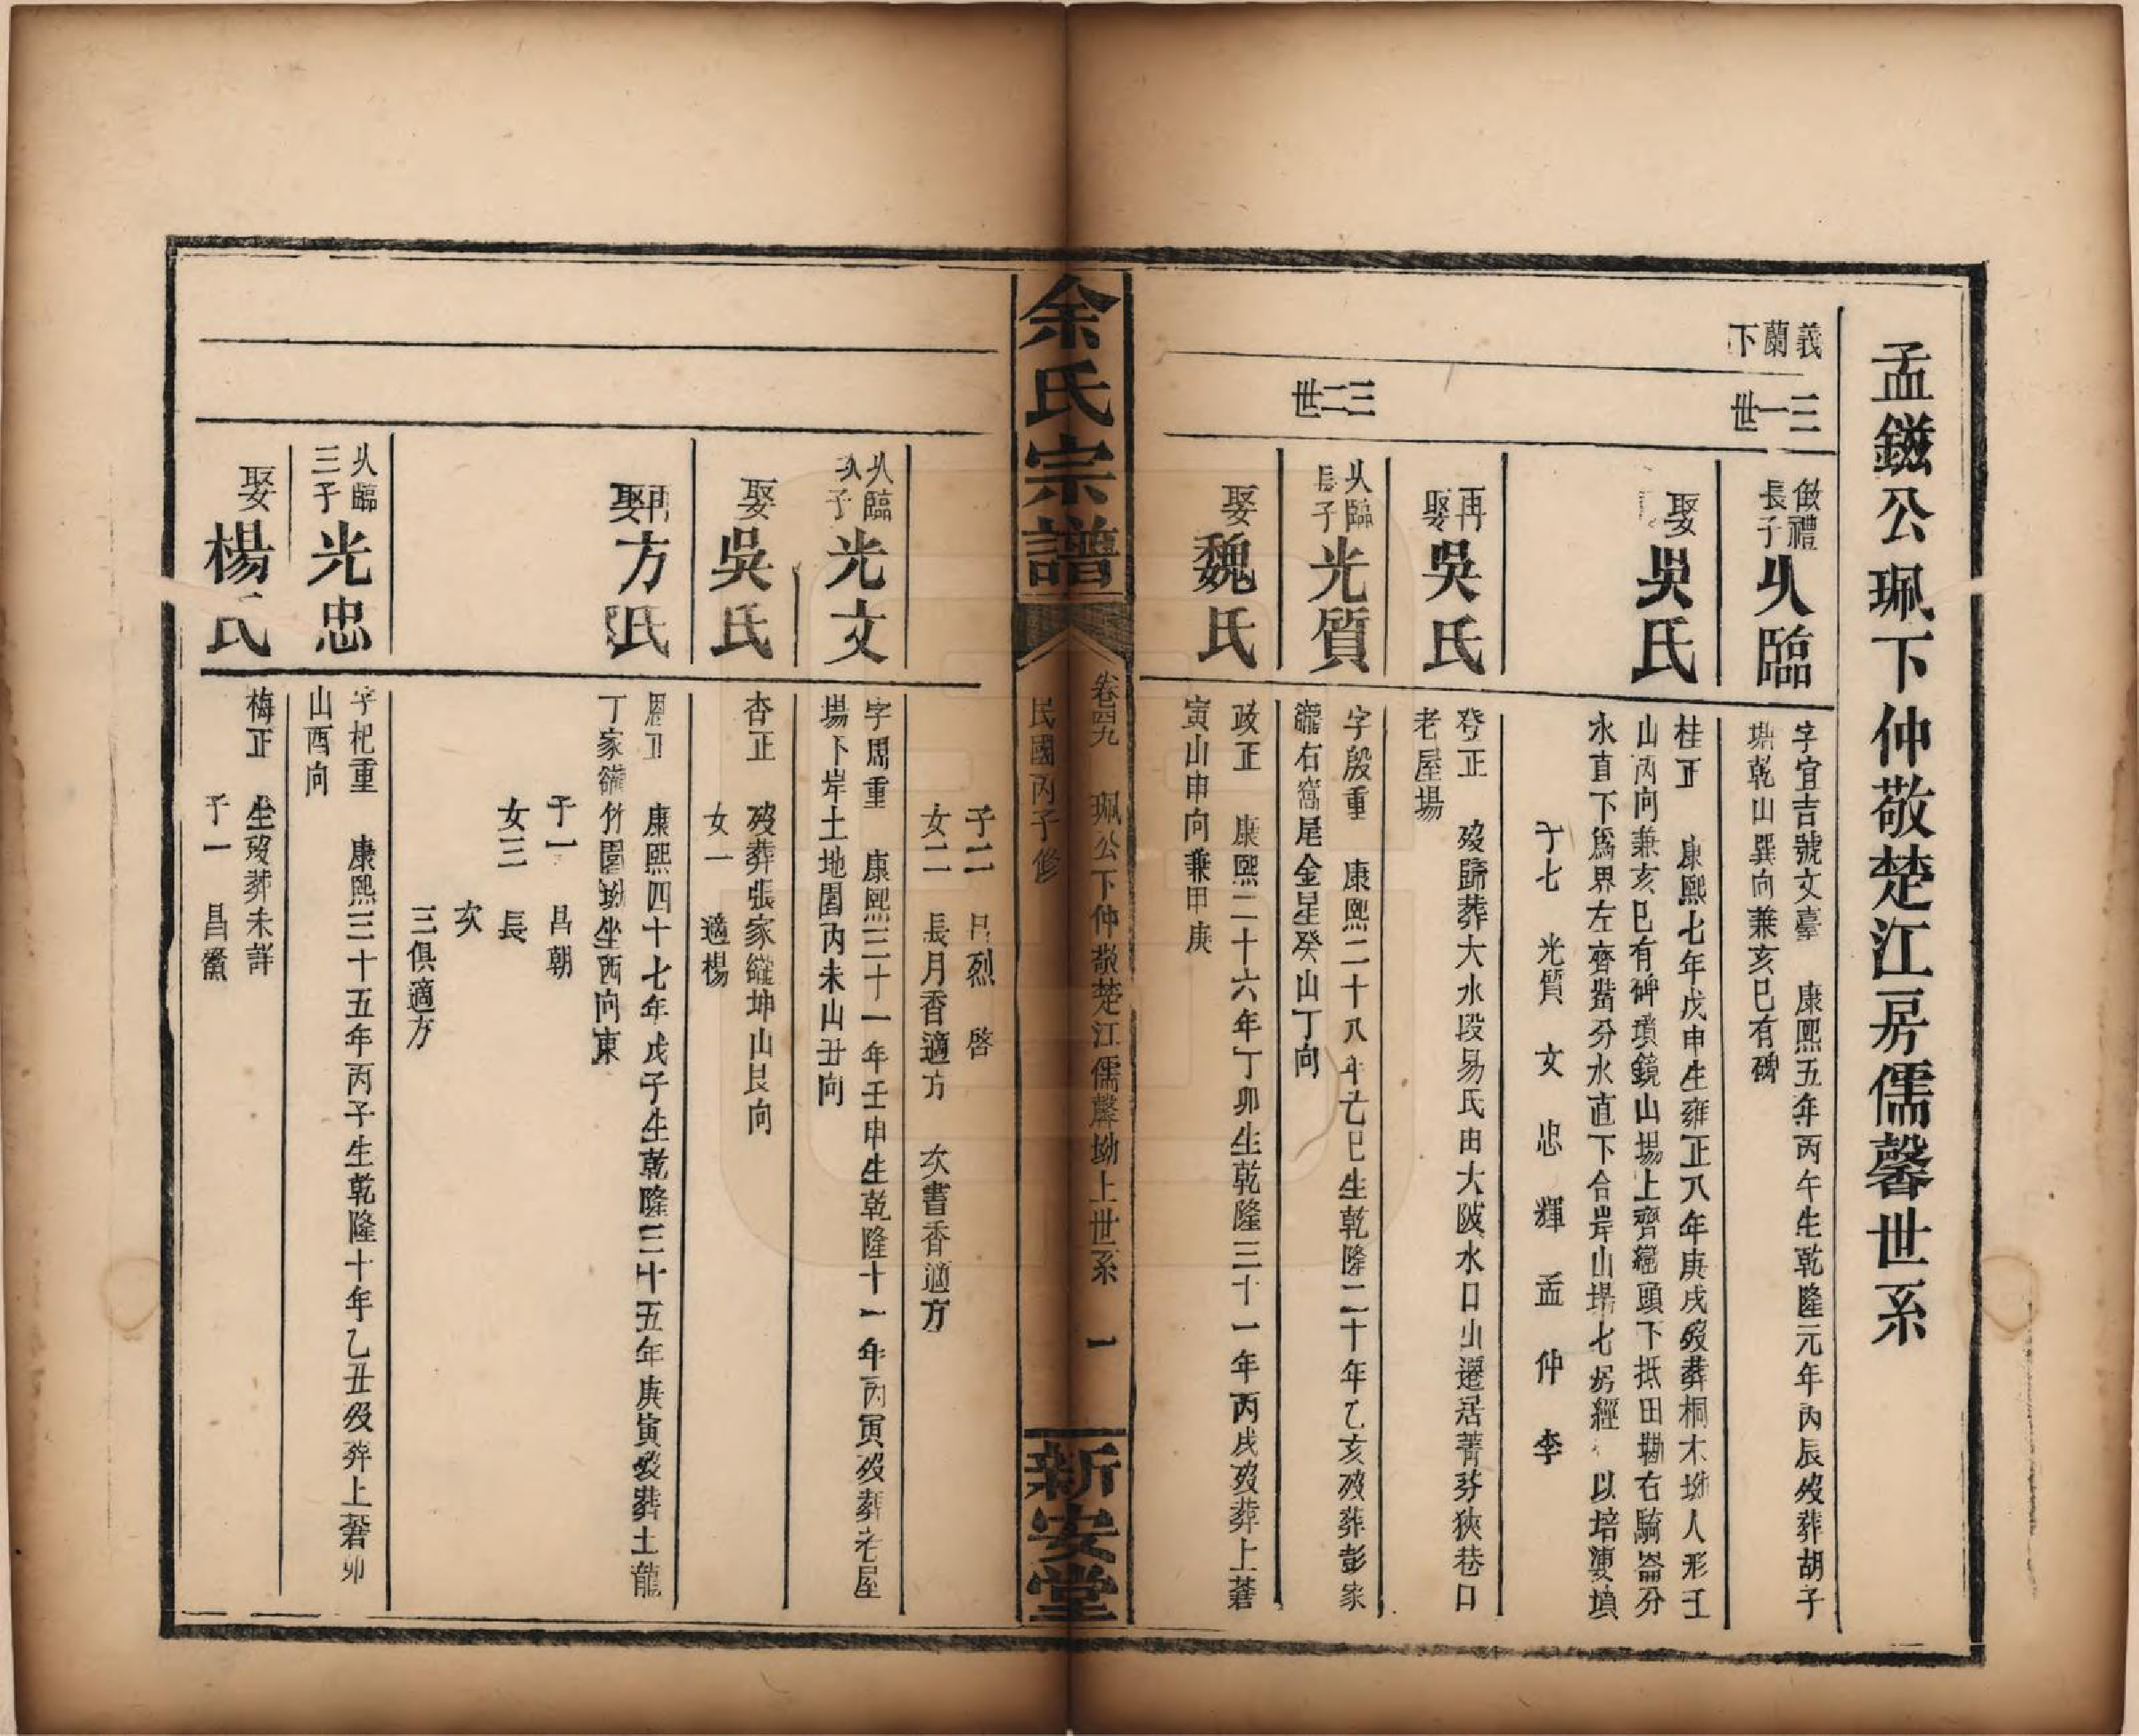 孟鎡公珮下仲敬楚江房儒馨世系
義蘭下
三一世
倣禮長子
乆臨
字宜吉號文臺　康熙五年丙午生乾隆元年丙辰歿葬胡子
塘乾山巽向兼亥巳有碑
娶吳氏
桂正　康熙七年戊申生雍正八年庚戌歿葬桐木坳人形壬
山丙向兼亥巳有碑墳鏡山場上齊纙頭下抵田墈右騎崙分
水直下爲界左齊嶲分水直下合岸山塲七房經　以培護墳
子七　光質　文　忠　輝　孟　仲　李
再娶吳氏
登正　歿歸葬大水段易氏由大陂水口山遷居菁芬狹巷口
老屋場
三二世
乆臨長子
光質
字殷重　康熙二十八年己巳生乾隆二十年乙亥歿葬彭家
龍右窩尾金星癸山丁向
娶魏氏
政正　康熙二十六年丁卯生乾隆三十一年丙戌歿葬上莙
寅山申向兼甲庚
余氏宗譜
卷四九　珮公下仲敬楚江儒馨坳上世系　一
民國丙子修
新安堂
子二　昌烈　啓
女二　長月香適方　次書香適方
乆臨次子
光文
字周重　康熙三十一年壬申生乾隆十一年丙寅歿葬老屋
場下岸土地園內未山丑向
娶吳氏
杏正　歿葬張家嶐坤山艮向
女一　適楊
再娶方氏
周正　康熙四十七年戊子生乾隆三十五年庚寅歿葬土龍
丁家嶐竹園坳坐西向東
子一　昌朝
女三　長
次
三俱適方
乆臨三子
光忠
字杞重　康熙三十五年丙子生乾隆十年乙丑歿葬上莙卯
山酉向
娶楊氏
梅正　生歿葬未詳
子一　昌黨